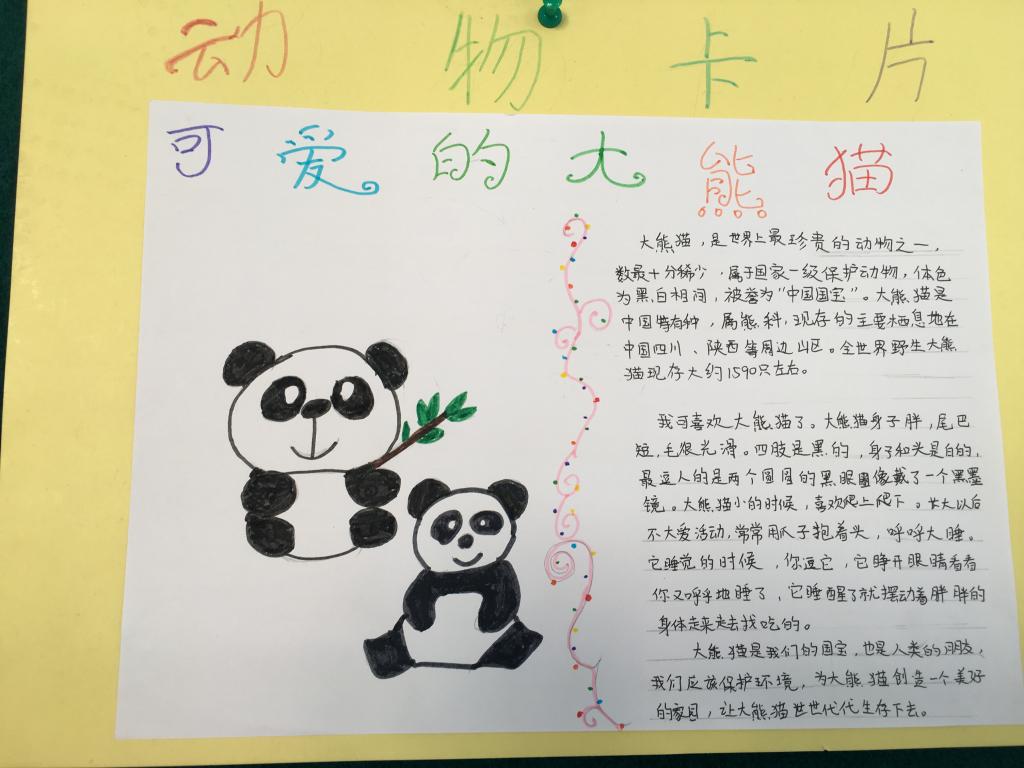 动物卡片
可爱的大熊猫
大熊猫，是世界上最珍贵的动物之一，
数最十分稀少，属于国家一级保护动物，体色
为黑白相间，被誉为“中国国宝”。大熊猫是
中国特有种，属熊科，现存的主要栖息地在
中国四川、陕西等周边山区。全世界野生大熊
猫现存大约1590只左右。
我可喜欢大熊猫了。大熊猫身子胖，尾巴
短，毛很光滑。四肢是黑的，身子和头是白的，
最逗人的是两个圆圆的黑眼圈像戴了一个黑墨
镜。大熊猫小的时候，喜欢爬上爬下。长大以后
不大爱活动，常常用爪子抱着头，呼呼大睡。
它睡觉的时候，你逗它，它睁开眼睛看看
你又呼呼地睡了，它睡醒了就摆动着胖胖的
身体走来走去找吃的。
大熊猫是我们的国宝，也是人类的朋友，
我们应该保护环境，为大熊猫创造一个美好
的家园，让大熊猫世世代代生存下去。